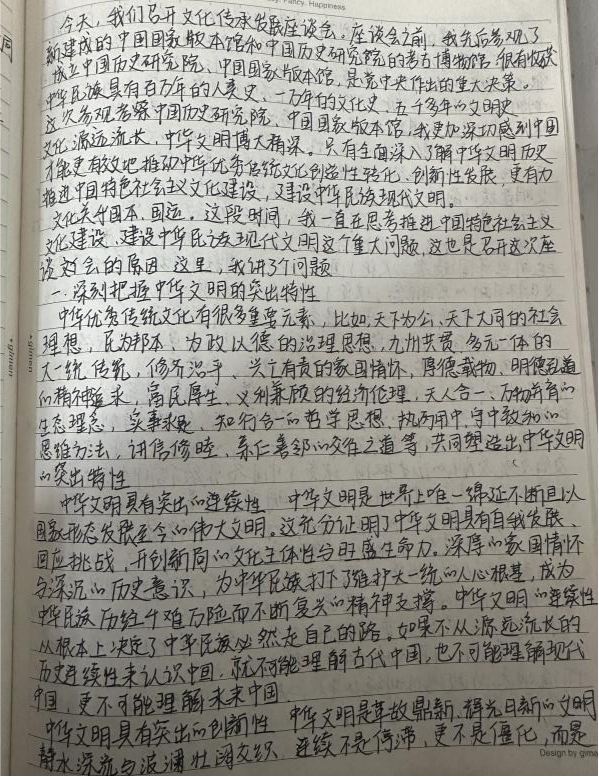 Fancy. Happiness
今天,我们召开文化传承发展座谈会。座谈会之前,我先后参观了
新建成的中国国家版本馆和中国历史研究院的考古博物馆,很有收获
成立中国历史研究院、中国国家版本馆,是党中央作出的重大决策。
中华民族具有百万年的人类史、一万年的文化史、五千多年的文明史
这次参观考察中国历史研究院、中国国家版本馆,我更加深切感到中国
文化源远流长,中华文明博大精深。只有全面深入了解中华文明历史
才能更有效地推动中华优秀传统文化创造性转化、创新性发展,更有力
推进中国特色社会主义文化建设,建设中华民族现代文明。
文化关乎国本、国运。这段时间,我一直在思考推进中国特色社会主义
文化建设、建设中华民族现代文明这个重大问题,这也是召开这次座
谈会的原因 这里,我讲3个问题
一.深刻把握中华文明的突出特性
中华优秀传统文化有很多重要元素,比如,天下为公、天下大同的社会
理想,民为邦本、为政以德的治理思想,九州共贯、多元一体的
大一统传统,修齐治平、兴亡有责的家国情怀,厚德载物、明德弘道
的精神追求,富民厚生、义利兼顾的经济伦理,天人合一、万物并育的
生态理念,实事求是、知行合一的哲学思想,执两用中、守中致和的
思维方法,讲信修睦、亲仁善邻的交往之道等,共同塑造出中华文明
的突出特性
中华文明具有突出的连续性 中华文明是世界上唯一绵延不断且以
国家形态发展至今的伟大文明。这充分证明了中华文明具有自我发展、
回应挑战、开创新局的文化主体性与旺盛生命力。深厚的家国情怀
与深沉的历史意识,为中华民族打下了维护大一统的人心根基,成为
中华民族历经千难万险而不断复兴的精神支撑。中华文明的连续性
从根本上决定了中华民族必然走自己的路。如果不从源远流长的
历史连续性来认识中国,就不可能理解古代中国,也不可能理解现代
中国,更不可能理解未来中国
中华文明具有突出的创新性 中华文明是革故鼎新、辉光日新的文明
静水深流与波澜壮阔交织 连续不是停滞、更不是僵化,而是
Design by